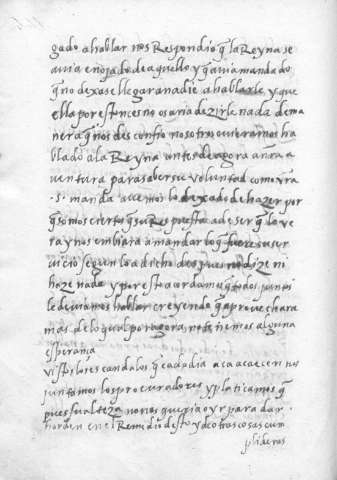 gado a hablar nos Respondio q̃ la Reyna se
avia enojado de aquello y q̃ avia mandado
q̃ no dexase llegar a nadie a hablarle y que
ella por estonces no osaria dezirle nada de ma
nera q̃ nos desconfio nosotros ovieramos ha
blado a la Reyna antes de agora a n̄ra a
ventura para saber su voluntad como v̄ra
.s. manda avemos lo dexado de hazer por
q̃ somos ciertos q̃ su Respuesta a de ser q̃ lo ve
ra y nos enbiara a mandar lo q̃ fuere su ser
vicio segun lo a dicho despues no dize ni
haze nada y por esto acordamos q̃ todos juntos
le deviamos hablar creyendo q̃ aprovechara
mas de lo qual por agora no tenemos alguna
esperança
vistos los escandalos q̃ cada dia aca acaecen nos
juntamos los procuradores y platicamos q̃
pues su alteza no nos queria oyr para dar
horden en el Remedio desto y de otras cosas cum
plideras